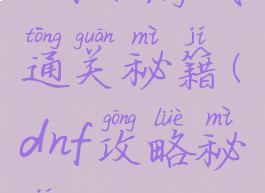 tōng guān mì jí
通关秘籍(
gōng lüè mì
dnf攻略秘